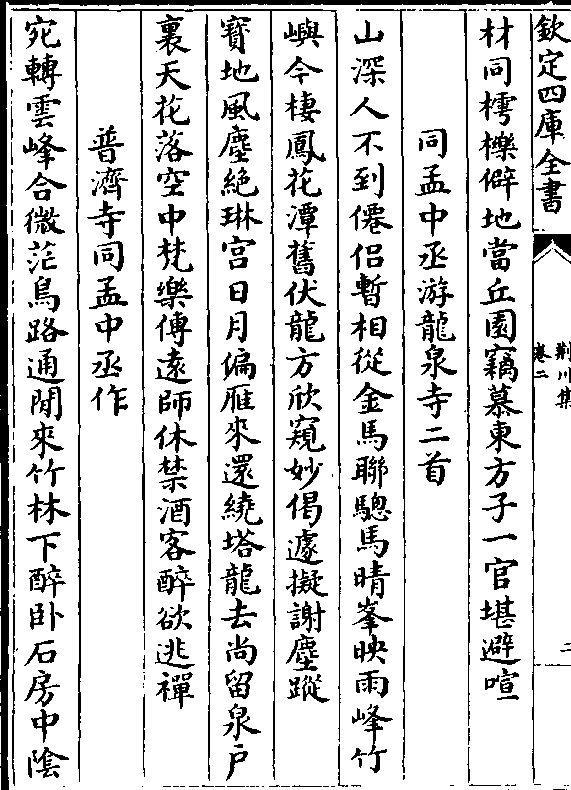 欽定四庫全書
荆川集
卷二
二
材同樗櫟僻地當丘園竊慕東方子一官堪避喧
同孟中丞游龍泉寺二首
山深人不到僊侣暫相從金馬聯驄馬晴峯映雨峰竹
嶼今棲鳳花潭舊伏龍方欣窺妙偈遽擬謝塵蹤
寳地風塵絶琳宫日月偏雁來還繞塔龍去尚留泉户
裏天花落空中梵樂傳遠師休禁酒客醉欲逃禪
普濟寺同孟中丞作
宛轉雲峰合微茫鳥路通閒來竹林下醉卧石房中陰